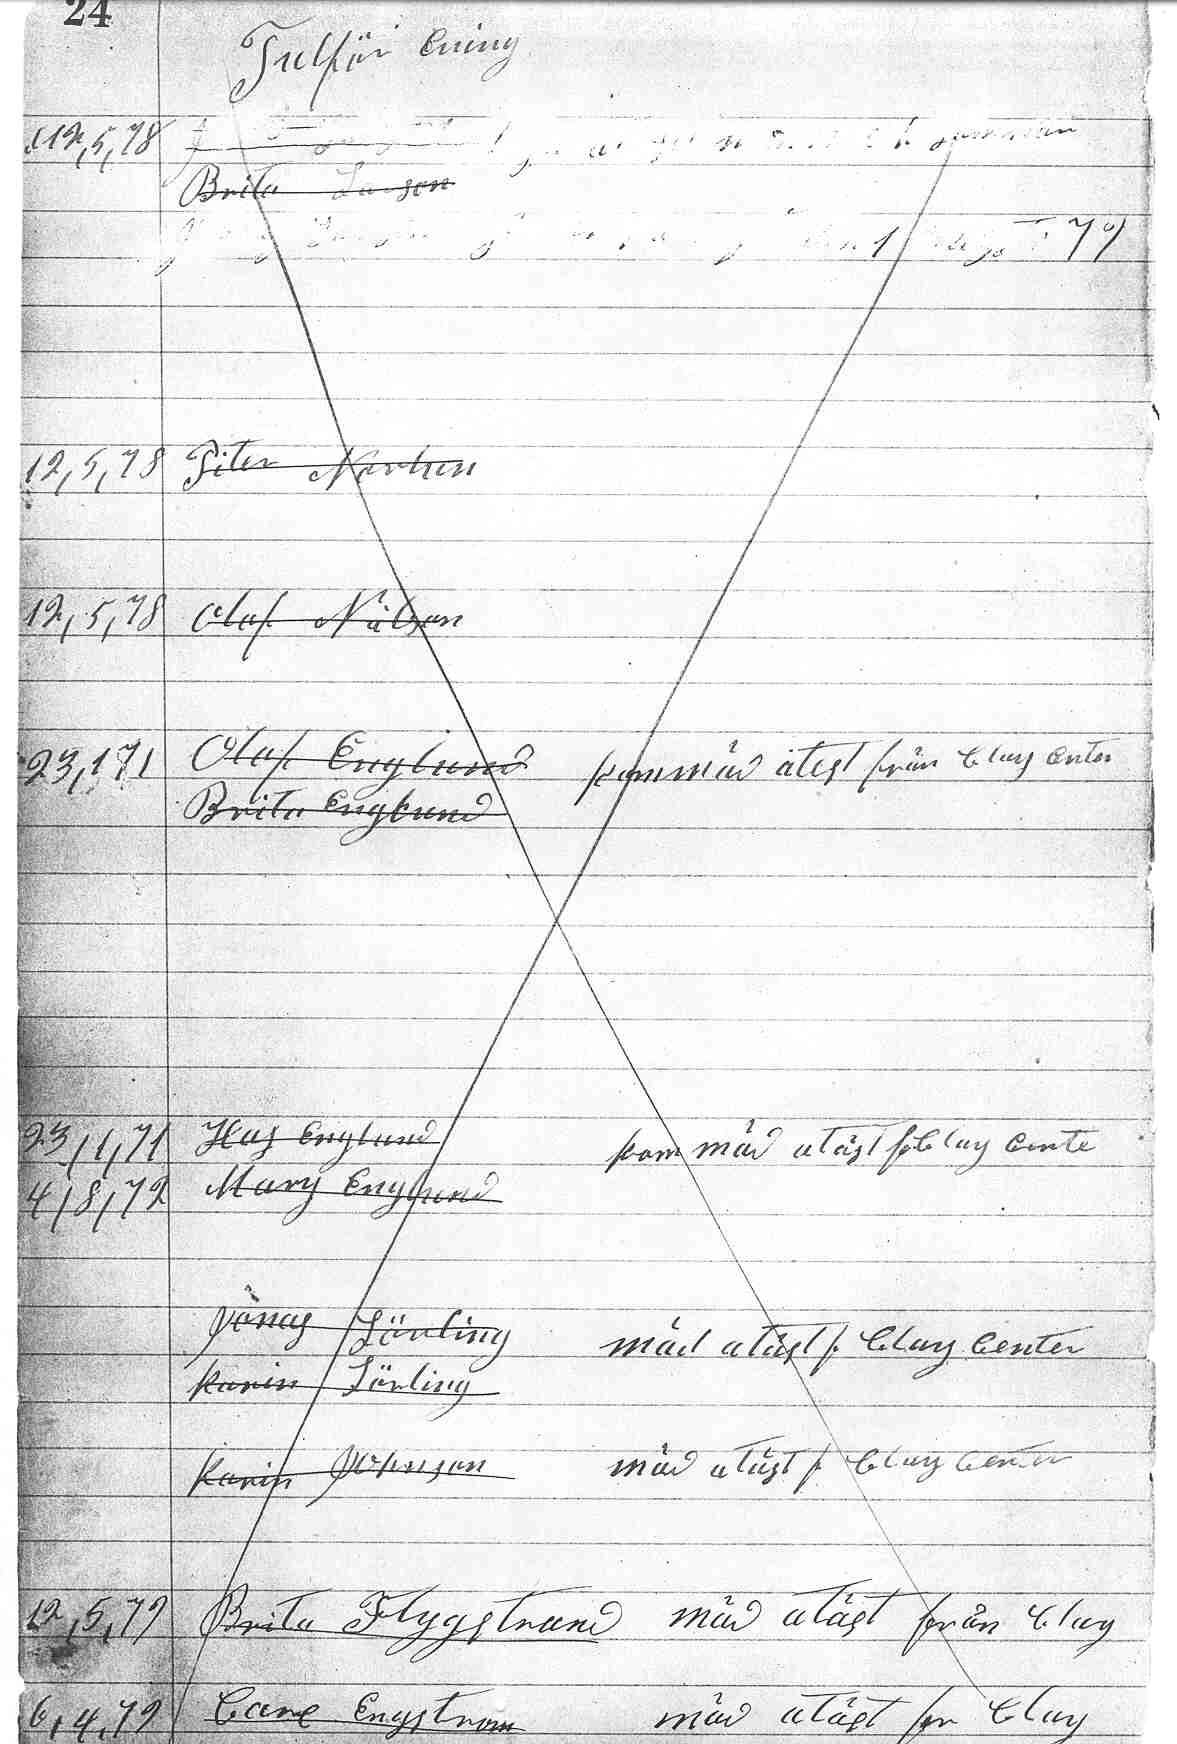 24
Tulför Ening
12,5,78
Brita Larson
79
12,5,78 Piter Norlin
12,5,78 Olof Nilson
23,1,71 Olof Englund kom mäd atest från Clay Center
Brita Englund
23,1,71 Has Englund kom mäd atäst f Clay Cente
4,8,72 Mary Englund
Jonas Förling mäd atäst f. Clay Center
Karin Förling
Karin Johnson mäd atäst f Clay Center
12,5,79 Brita Flygstrand mäd atäst från Clay
6,4,79 Carl Engstrom mäd atäst fr Clay